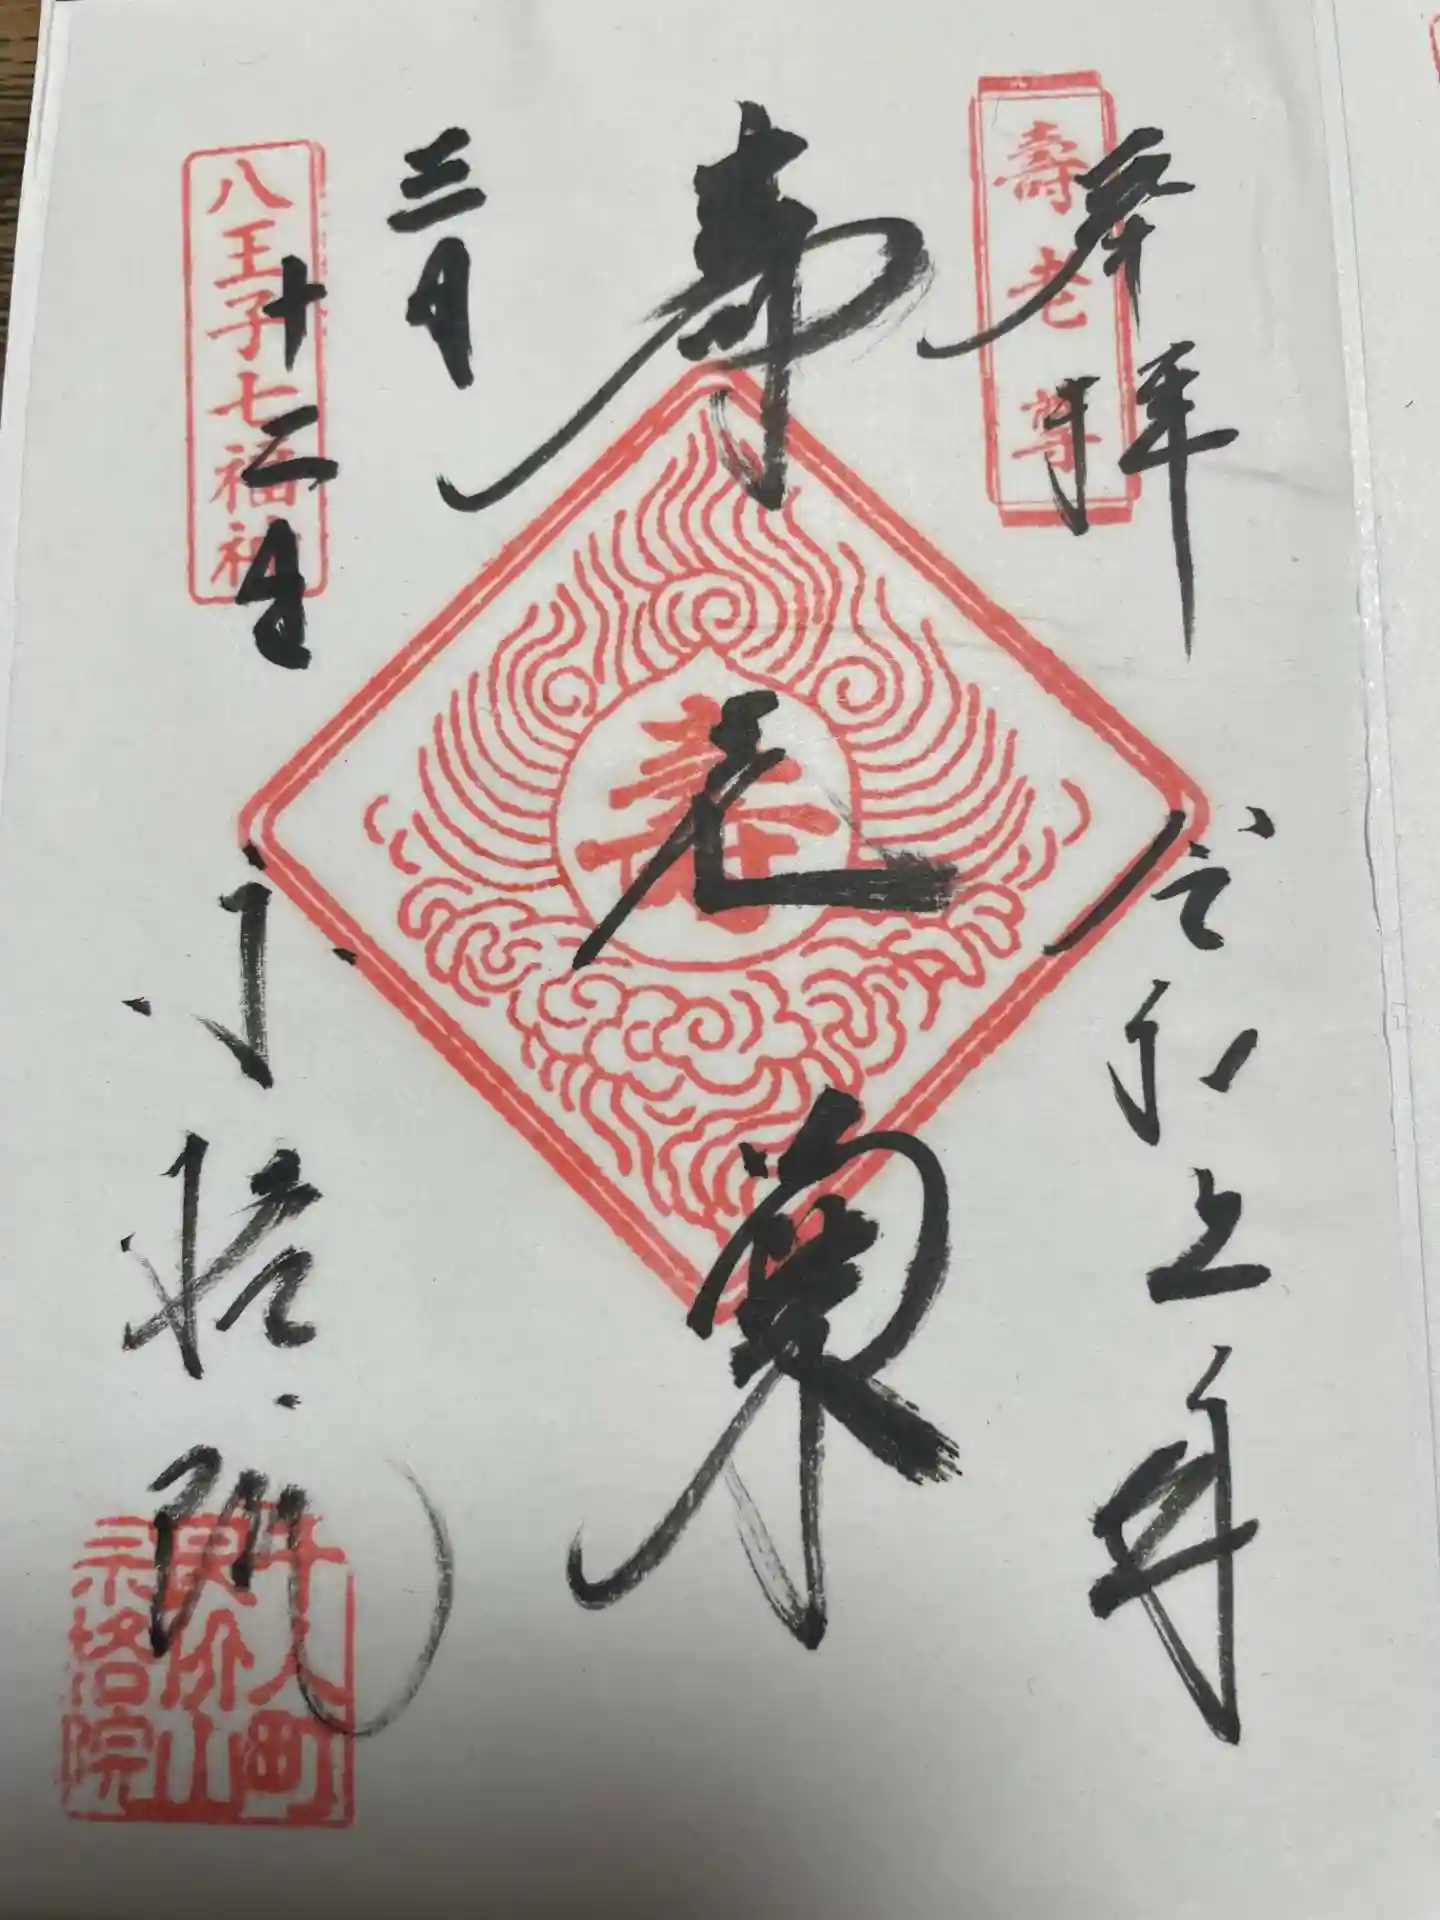 奉拝
令和五年
壽老尊
寿老尊
寿
三月
十二日
八王子七福神
宗格院
千人町
良价山
宗格院